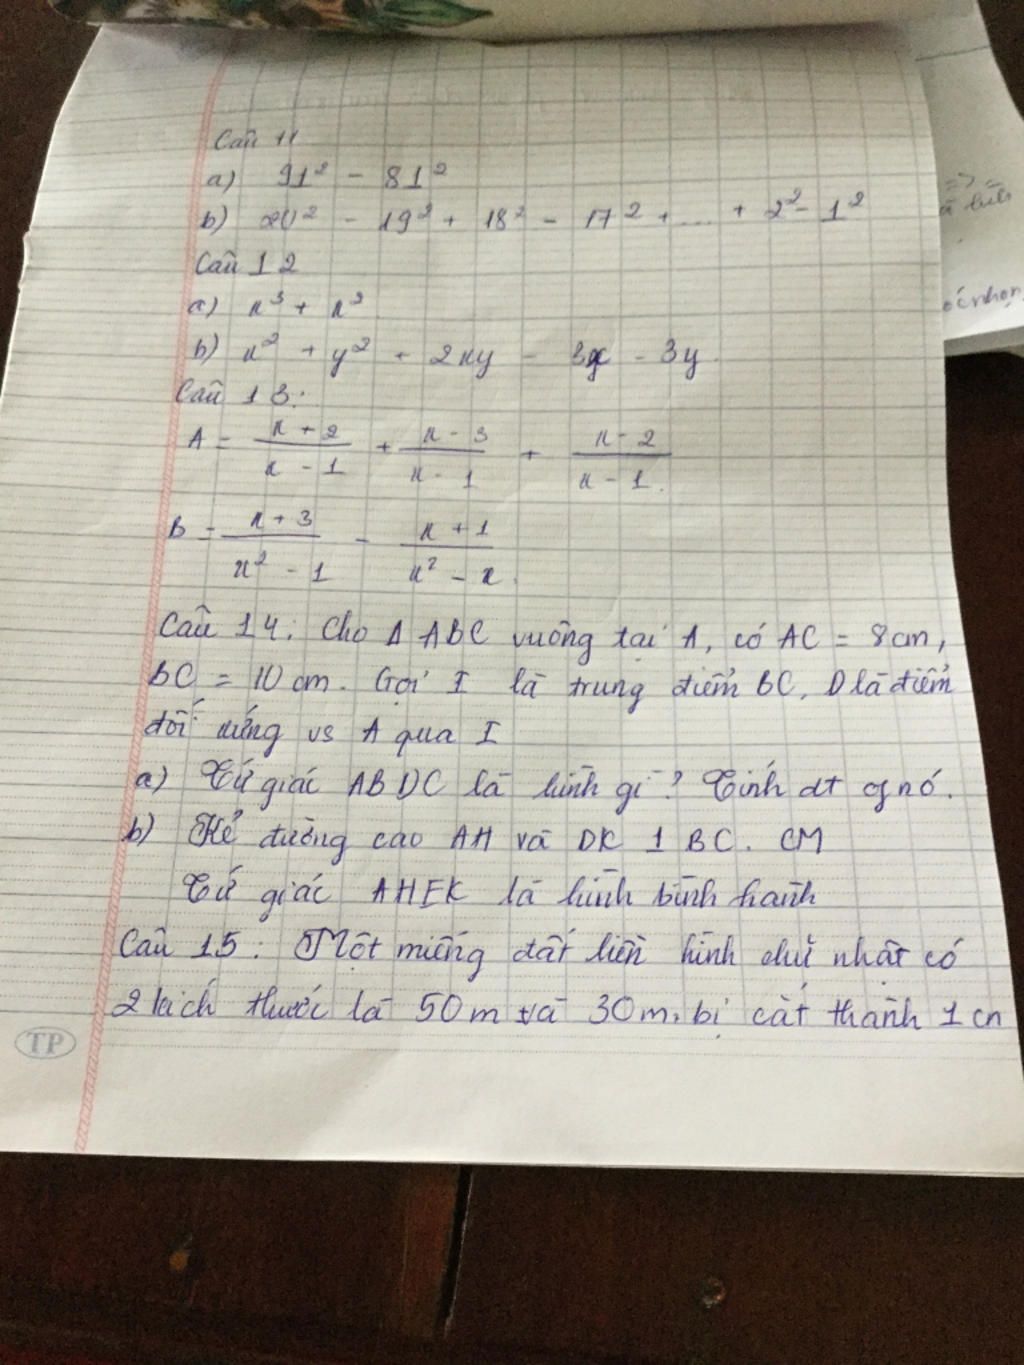 Câu 11
a) 91² - 81²
b) 20² - 19² + 18² - 17² + ... + 2² - 1²
Câu 12
a) x³ + x²
b) x² + y² + 2xy - 3x - 3y
Câu 13:
A = \frac{x + 2}{x - 1} + \frac{x - 3}{x - 1} + \frac{x - 2}{x - 1}.
B = \frac{x + 3}{x² - 1} - \frac{x + 1}{x² - x}.
Câu 14: Cho Δ ABC vuông tại A, có AC = 8cm,
BC = 10 cm. Gọi I là trung điểm BC, D là điểm
đối xứng vs A qua I
a) Tứ giác ABDC là hình gì? Tính dt of nó.
b) Kẻ đường cao AH và DK ⊥ BC. CM
Tứ giác AHEK là hình bình hành
Câu 15: Một miếng đất liền hình chữ nhật có
2 kích thước là 50m và 30m, bị cắt thành 1 cn
TP
=> =